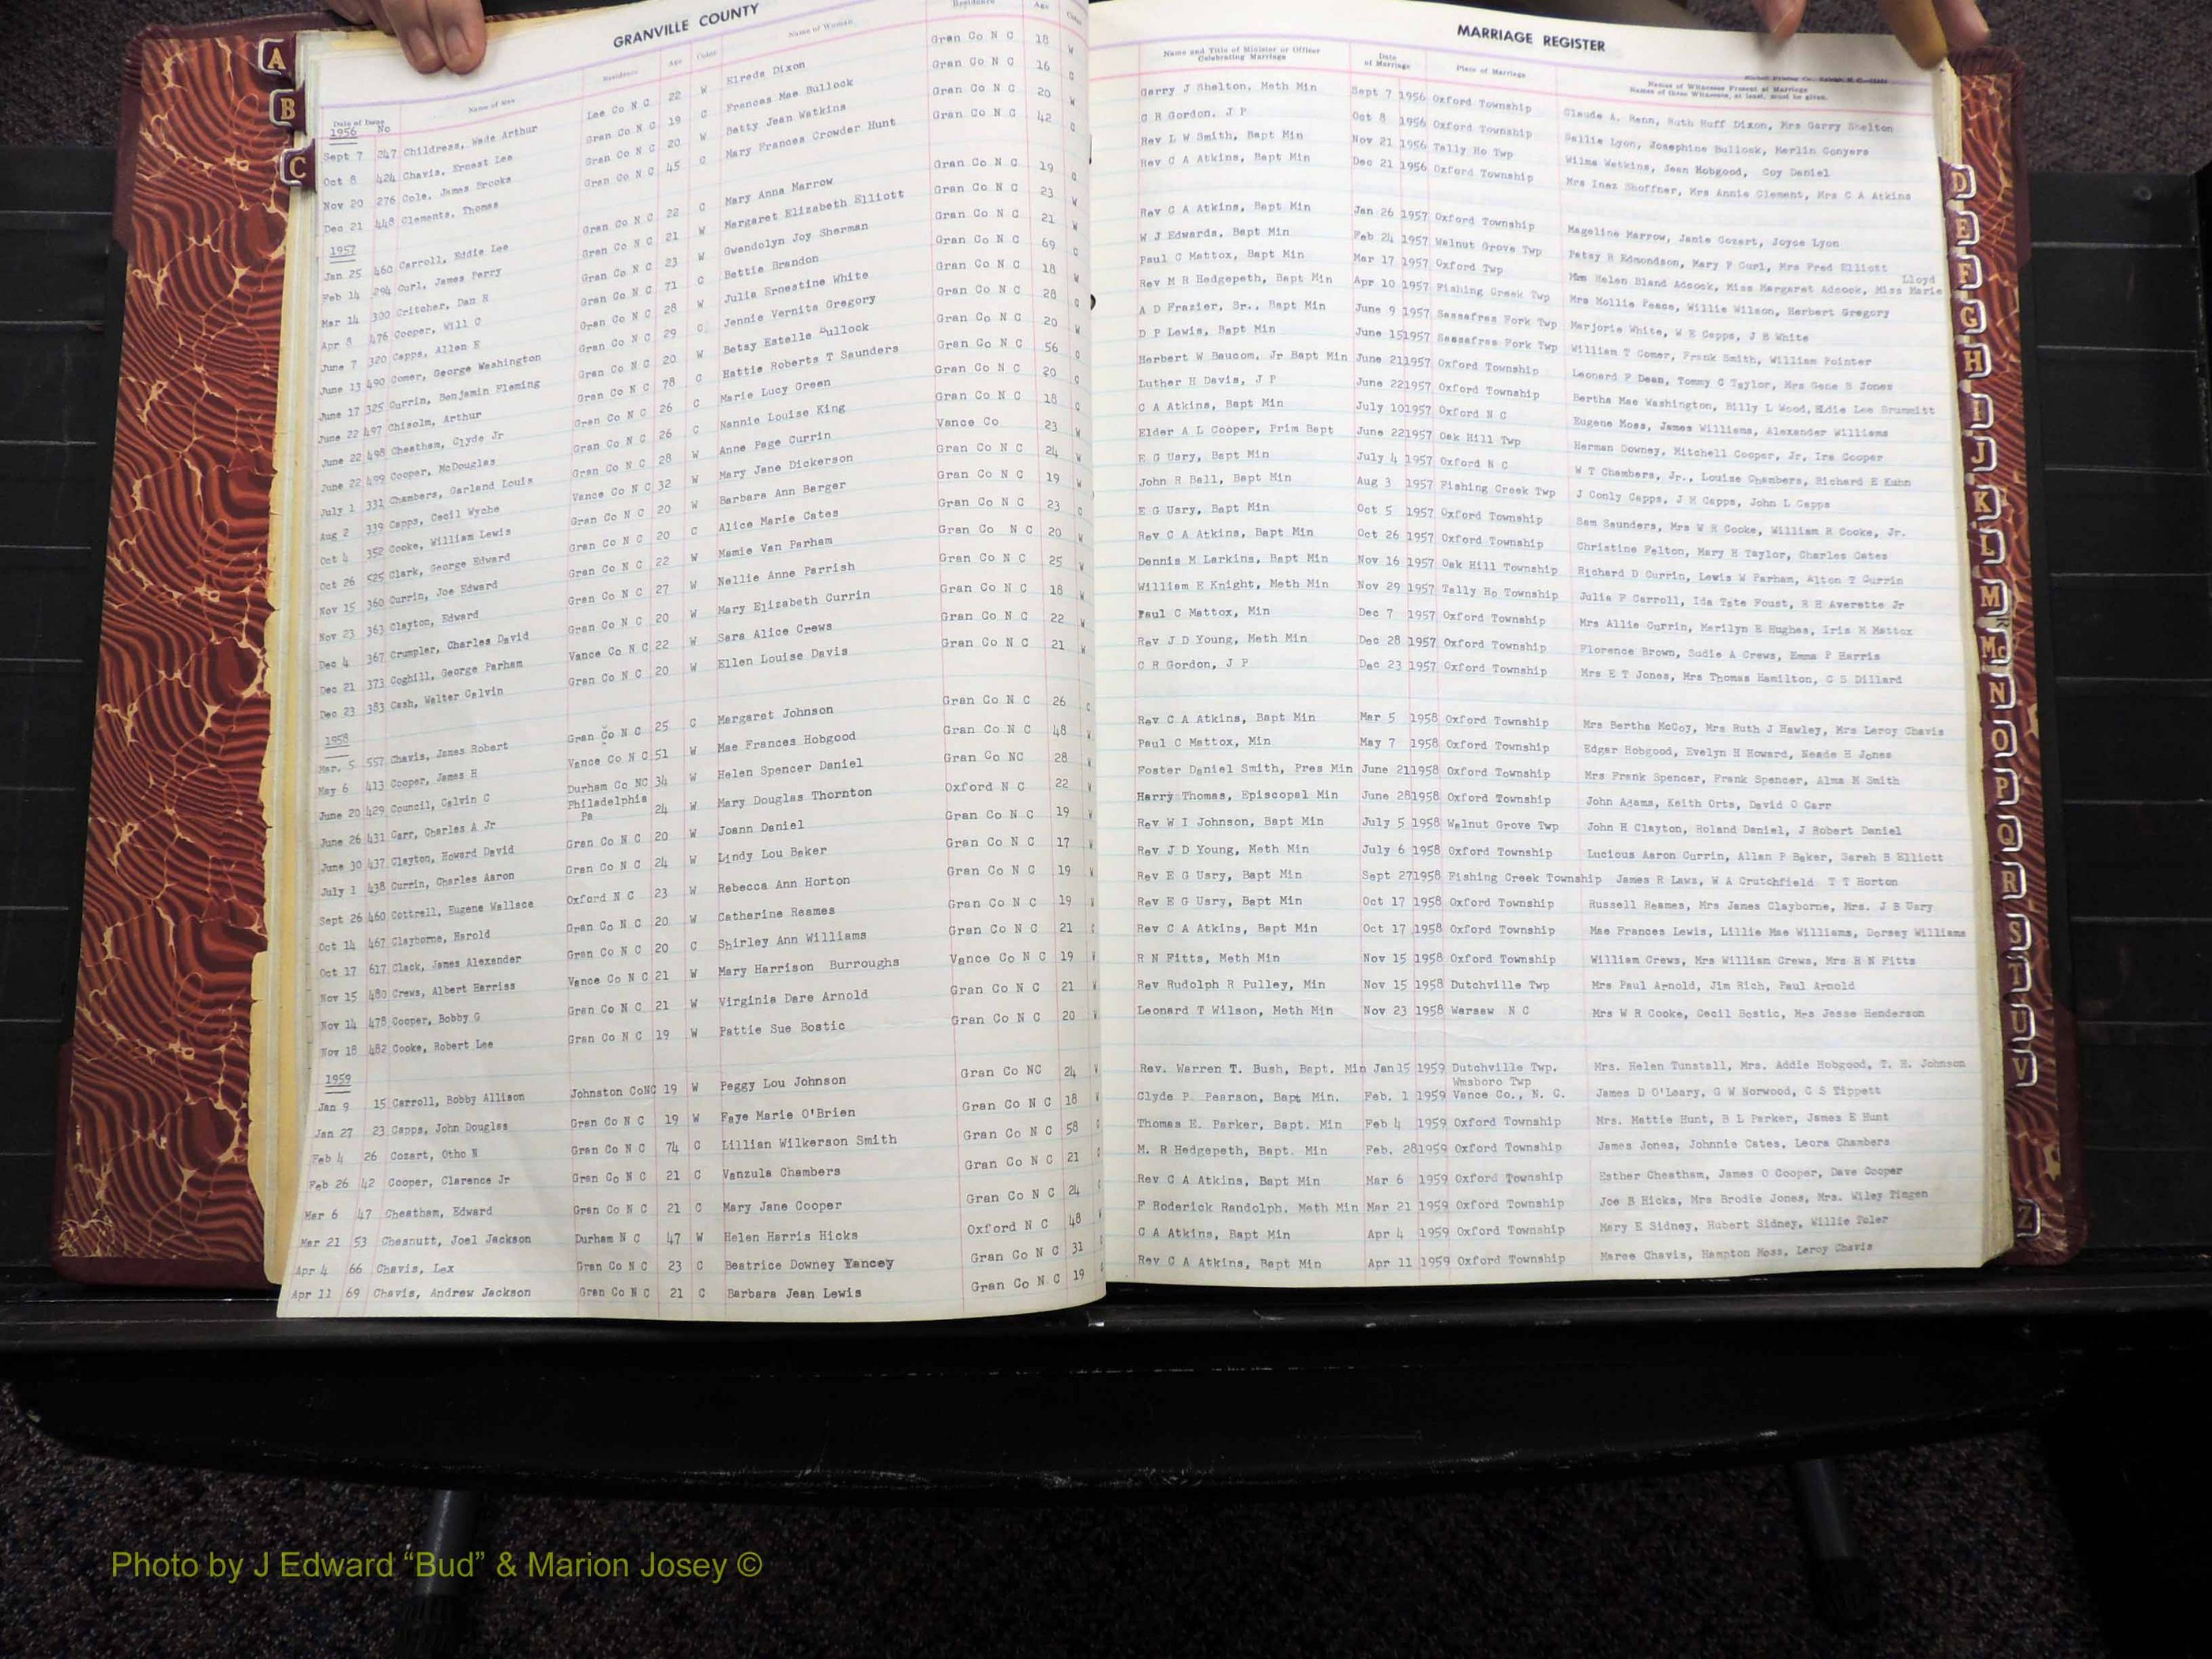 GRANVILLE COUNTY
MARRIAGE REGISTER
Date of Issue No Name of Man Residence Age Color Name of Woman Residence Age Color Name and Title of Minister or Officer Celebrating Marriage Date of Marriage Place of Marriage Names of Witnesses Present at Marriage Names of three Witnesses, at least, must be given.
1956
Sept 7 247 Childress, Wade Arthur Lee Co N C 22 W Elreda Dixon Gran Co N C 18 W Garry J Shelton, Meth Min Sept 7 1956 Oxford Township Claude A. Renn, Ruth Huff Dixon, Mrs Garry Shelton
Oct 8 424 Chavis, Ernest Lee Gran Co N C 19 C Frances Mae Bullock Gran Co N C 16 C C R Gordon, J P Oct 8 1956 Oxford Township Sallie Lyon, Josephine Bullock, Merlin Conyers
Nov 20 276 Cole, James Brooks Gran Co N C 20 W Betty Jean Watkins Gran Co N C 20 W Rev L W Smith, Bapt Min Nov 21 1956 Tally Ho Twp Wilma Watkins, Jean Hobgood, Coy Daniel
Dec 21 448 Clements, Thomas Gran Co N C 45 C Mary Frances Crowder Hunt Gran Co N C 42 C Rev C A Atkins, Bapt Min Dec 21 1956 Oxford Township Mrs Inez Shoffner, Mrs Annie Clement, Mrs C A Atkins
1957
Jan 25 460 Carroll, Eddie Lee Gran Co N C 22 C Mary Anna Marrow Gran Co N C 19 C Rev C A Atkins, Bapt Min Jan 26 1957 Oxford Township Mageline Marrow, Janie Cozart, Joyce Lyon
Feb 14 294 Curl, James Perry Gran Co N C 21 W Margaret Elizabeth Elliott Gran Co N C 23 W W J Edwards, Bapt Min Feb 24 1957 Walnut Grove Twp Patsy R Edmondson, Mary P Curl, Mrs Fred Elliott
Mar 14 300 Critcher, Dan R Gran Co N C 23 W Gwendolyn Joy Sherman Gran Co N C 21 W Paul C Mattox, Bapt Min Mar 17 1957 Oxford Twp Helen Bland Adcock, Miss Margaret Adcock, Miss Marie Lloyd
Apr 8 476 Cooper, Will C Gran Co N C 71 C Bettie Brandon Gran Co N C 69 C Rev M R Hedgepeth, Bapt Min Apr 10 1957 Fishing Creek Twp Mrs Mollie Peace, Willie Wilson, Herbert Gregory
June 7 320 Capps, Allen E Gran Co N C 28 W Julia Ernestine White Gran Co N C 18 W A D Frazier, Sr., Bapt Min June 9 1957 Sassafras Fork Twp Marjorie White, W E Capps, J B White
June 13 490 Comer, George Washington Gran Co N C 29 C Jennie Vernita Gregory Gran Co N C 28 C D P Lewis, Bapt Min June 15 1957 Sassafras Fork Twp William T Comer, Frank Smith, William Pointer
June 17 325 Currin, Benjamin Fleming Gran Co N C 20 W Betsy Estelle Bullock Gran Co N C 20 W Herbert W Baucom, Jr Bapt Min June 21 1957 Oxford Township Leonard P Dean, Tommy C Taylor, Mrs Gene B Jones
June 22 497 Chisolm, Arthur Gran Co N C 78 C Hattie Roberts T Saunders Gran Co N C 56 C Luther H Davis, J P June 22 1957 Oxford Township Bertha Mae Washington, Billy L Wood, Eldie Lee Brummitt
June 22 498 Cheatham, Clyde Jr Gran Co N C 26 C Marie Lucy Green Gran Co N C 20 C C A Atkins, Bapt Min July 10 1957 Oxford N C Eugene Moss, James Williams, Alexander Williams
June 22 499 Cooper, McDouglas Gran Co N C 26 C Nannie Louise King Gran Co N C 18 C Elder A L Cooper, Prim Bapt June 22 1957 Oak Hill Twp Herman Downey, Mitchell Cooper, Jr, Ira Cooper
July 1 331 Chambers, Garland Louis Gran Co N C 28 W Anne Page Currin Vance Co 23 W E G Usry, Bapt Min July 4 1957 Oxford N C W T Chambers, Jr., Louise Chambers, Richard E Kuhn
Aug 2 339 Capps, Cecil Wyche Vance Co N C 32 W Mary Jane Dickerson Gran Co N C 24 W John R Ball, Bapt Min Aug 3 1957 Fishing Creek Twp J Conly Capps, J M Capps, John L Capps
Oct 4 352 Cooke, William Lewis Gran Co N C 20 W Barbara Ann Barger Gran Co N C 19 W E G Usry, Bapt Min Oct 5 1957 Oxford Township Sam Saunders, Mrs W R Cooke, William R Cooke, Jr.
Oct 26 525 Clark, George Edward Gran Co N C 20 C Alice Marie Cates Gran Co N C 23 C Rev C A Atkins, Bapt Min Oct 26 1957 Oxford Township Christine Felton, Mary H Taylor, Charles Cates
Nov 15 360 Currin, Joe Edward Gran Co N C 22 W Mamie Van Parham Gran Co N C 20 W Dennis M Larkins, Bapt Min Nov 16 1957 Oak Hill Township Richard D Currin, Lewis W Parham, Alton T Currin
Nov 23 363 Clayton, Edward Gran Co N C 27 W Nellie Anne Parrish Gran Co N C 25 W William E Knight, Meth Min Nov 29 1957 Tally Ho Township Julia F Carroll, Ida Tate Foust, R H Averette Jr
Dec 4 367 Crumpler, Charles David Gran Co N C 20 W Mary Elizabeth Currin Gran Co N C 18 W Paul C Mattox, Min Dec 7 1957 Oxford Township Mrs Allie Currin, Marilyn E Hughes, Iris H Mattox
Dec 21 373 Coghill, George Parham Vance Co N C 22 W Sara Alice Crews Gran Co N C 22 W Rev J D Young, Meth Min Dec 28 1957 Oxford Township Florence Brown, Sudie A Crews, Emma P Harris
Dec 23 383 Cash, Walter Calvin Gran Co N C 20 W Ellen Louise Davis Gran Co N C 21 W C R Gordon, J P Dec 23 1957 Oxford Township Mrs E T Jones, Mrs Thomas Hamilton, C S Dillard
1958
Mar. 5 557 Chavis, James Robert Gran Co N C 25 C Margaret Johnson Gran Co N C 26 C Rev C A Atkins, Bapt Min Mar 5 1958 Oxford Township Mrs Bertha McCoy, Mrs Ruth J Hawley, Mrs Leroy Chavis
May 6 413 Cooper, James H Vance Co N C 51 W Mae Frances Hobgood Gran Co N C 48 W Paul C Mattox, Min May 7 1958 Oxford Township Edgar Hobgood, Evelyn H Howard, Neade H Jones
June 20 429 Council, Calvin C Durham Co NC 34 W Helen Spencer Daniel Gran Co NC 28 W Foster Daniel Smith, Pres Min June 21 1958 Oxford Township Mrs Frank Spencer, Frank Spencer, Alma M Smith
June 26 431 Carr, Charles A Jr Philadelphia Pa 24 W Mary Douglas Thornton Oxford N C 22 W Harry Thomas, Episcopal Min June 28 1958 Oxford Township John Adams, Keith Orts, David O Carr
June 30 437 Clayton, Howard David Gran Co N C 20 W Joann Daniel Gran Co N C 19 W Rev W I Johnson, Bapt Min July 5 1958 Walnut Grove Twp John H Clayton, Roland Daniel, J Robert Daniel
July 1 438 Currin, Charles Aaron Gran Co N C 24 W Lindy Lou Baker Gran Co N C 17 W Rev J D Young, Meth Min July 6 1958 Oxford Township Lucious Aaron Currin, Allan P Baker, Sarah B Elliott
Sept 26 460 Cottrell, Eugene Wallace Oxford N C 23 W Rebecca Ann Horton Gran Co N C 19 W Rev E G Usry, Bapt Min Sept 27 1958 Fishing Creek Township James R Laws, W A Crutchfield T T Horton
Oct 14 467 Clayborne, Harold Gran Co N C 20 W Catherine Reames Gran Co N C 19 W Rev E G Usry, Bapt Min Oct 17 1958 Oxford Township Russell Reames, Mrs James Clayborne, Mrs. J B Usry
Oct 17 617 Clack, James Alexander Gran Co N C 20 C Shirley Ann Williams Gran Co N C 21 C Rev C A Atkins, Bapt Min Oct 17 1958 Oxford Township Mae Frances Lewis, Lillie Mae Williams, Dorsey Williams
Nov 15 480 Crews, Albert Harriss Vance Co N C 21 W Mary Harrison Burroughs Vance Co N C 19 W R N Fitts, Meth Min Nov 15 1958 Oxford Township William Crews, Mrs William Crews, Mrs R N Fitts
Nov 14 478 Cooper, Bobby G Gran Co N C 21 W Virginia Dare Arnold Gran Co N C 21 W Rev Rudolph R Pulley, Min Nov 15 1958 Dutchville Twp Mrs Paul Arnold, Jim Rich, Paul Arnold
Nov 18 482 Cooke, Robert Lee Gran Co N C 19 W Pattie Sue Bostic Gran Co N C 20 W Leonard T Wilson, Meth Min Nov 23 1958 Warsaw N C Mrs W R Cooke, Cecil Bostic, Mrs Jesse Henderson
1959
Jan 9 15 Carroll, Bobby Allison Johnston CoNC 19 W Peggy Lou Johnson Gran Co NC 24 W Rev. Warren T. Bush, Bapt. Min Jan 15 1959 Dutchville Twp. Mrs. Helen Tunstall, Mrs. Addie Hobgood, T. H. Johnson
Jan 27 23 Capps, John Douglas Gran Co N C 19 W Faye Marie O'Brien Gran Co N C 18 W Clyde P. Pearson, Bapt Min. Feb. 1 1959 Wmsboro Twp Vance Co., N. C. James D O'Leary, G W Norwood, C S Tippett
Feb 4 26 Cozart, Otho N Gran Co N C 74 C Lillian Wilkerson Smith Gran Co N C 58 C Thomas E. Parker, Bapt. Min Feb 4 1959 Oxford Township Mrs. Mattie Hunt, B L Parker, James E Hunt
Feb 26 42 Cooper, Clarence Jr Gran Co N C 21 C Vanzula Chambers Gran Co N C 21 C M. R Hedgepeth, Bapt. Min Feb. 28 1959 Oxford Township James Jones, Johnnie Cates, Leora Chambers
Mar 6 47 Cheatham, Edward Gran Co N C 21 C Mary Jane Cooper Gran Co N C 24 C Rev C A Atkins, Bapt Min Mar 6 1959 Oxford Township Esther Cheatham, James O Cooper, Dave Cooper
Mar 21 53 Chesnutt, Joel Jackson Durham N C 47 W Helen Harris Hicks Oxford N C 48 W F Roderick Randolph, Meth Min Mar 21 1959 Oxford Township Joe B Hicks, Mrs Brodie Jones, Mrs. Wiley Tingen
Apr 4 66 Chavis, Lex Gran Co N C 23 C Beatrice Downey Yancey Gran Co N C 31 C C A Atkins, Bapt Min Apr 4 1959 Oxford Township Mary E Sidney, Hubert Sidney, Willie Tuler
Apr 11 69 Chavis, Andrew Jackson Gran Co N C 21 C Barbara Jean Lewis Gran Co N C 19 C Rev C A Atkins, Bapt Min Apr 11 1959 Oxford Township Maree Chavis, Hampton Moss, Leroy Chavis
A
B
C
D
E
F
G
H
I
J
K
L
M
Mc
N
O
P
Q
R
S
T
U
V
Z
Photo by J Edward “Bud” & Marion Josey ©